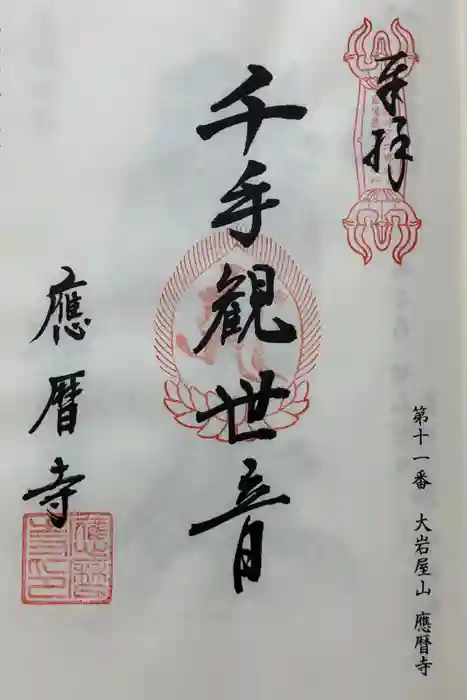 奉拝
千手観世音
應暦寺
第十一番 大岩屋山 應暦寺